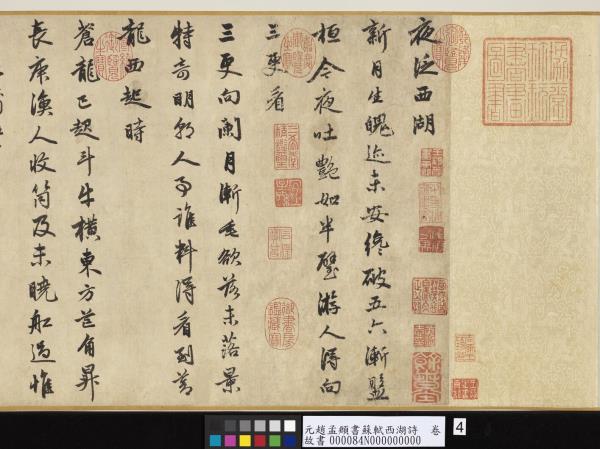 夜泛西湖
新月生魄迹未安纔破五六漸盤
桓今夜吐艷如半璧游人得向
三更看
三更向闌月漸垂欲落未落景
特奇明朝人事誰料得看到蒼
龍西起時
蒼龍已起斗牛橫東方芒角昇
長庚漁人收筒及未曉船過惟
元趙孟頫書蘇軾西湖詩 卷
故書 000084N000000000
4